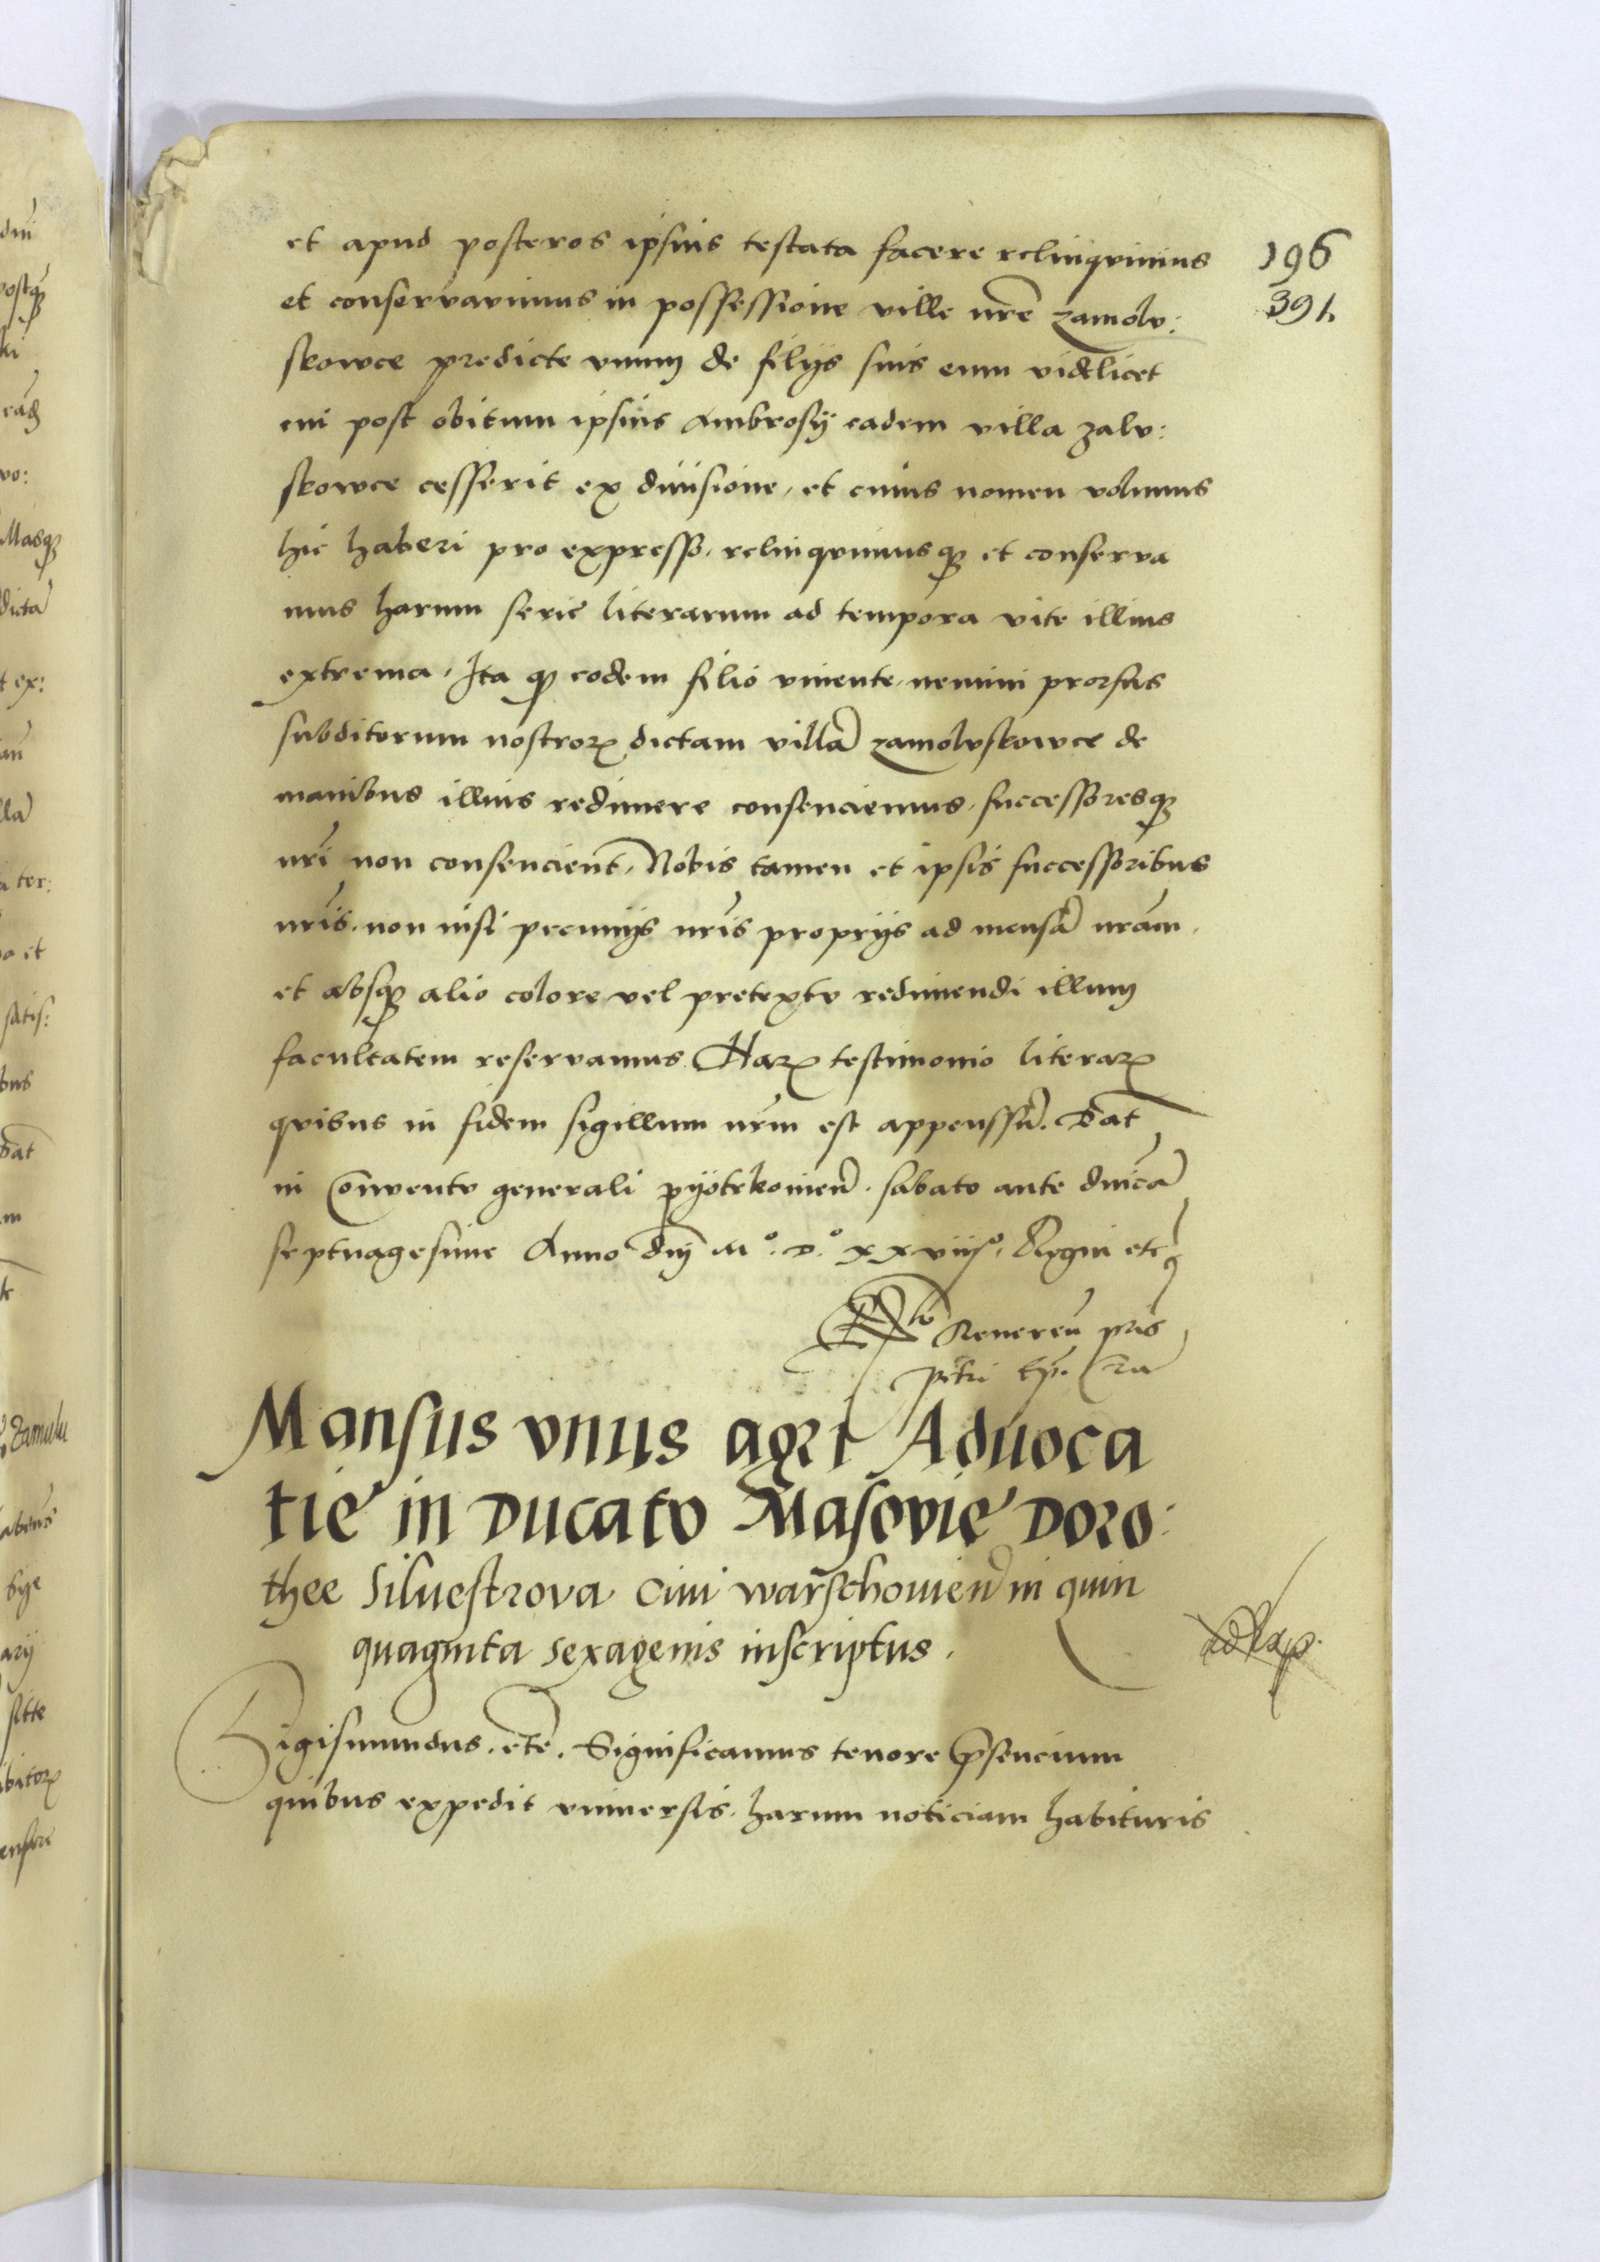 196
391.
et apud posteros ipsius testata facere relinquimus
et conservavimus in possessione ville nr̄e zamolv:
skowce predicte vnum de filijs suis eum videlicet
cui post obitum ipsius Ambrosij eadem villa zalv:
skowce cesserit ex diuisione, et cuius nomen volumus
hic haberi pro expresso, relinquimusq̷ et conserva
mus harum serie literarum ad tempora vite illius
extrema, Ita q̷ eodem filio vivente, nemini prorsus
subditorum nostroꝝ dictam villā zamolvskowce de
manibus illius redimere consenciemus, successoresq̷
nr̄i non consencient, Nobis tamen et ipsis successoribus
nr̄is, non nisi pecunijs nr̄is proprijs ad mensā nr̄am,
et absq̷ alio colore vel pretextv redimendi illum
facultatem reservamus Haꝝ testimonio literaꝝ
quibus in fidem sigillum nr̄m est appenssū. Dat̄
in Conventv generali pyotrkovien̄. sabato ante dn̄icā
septvagesime Anno dn̄j Mº. Dº. xxviijº, Regni etc̄
Reveren̄ pr̄is
petri
Mansus vnus agri Aduoca
tie in Ducatv Masovie Doro:
thee Siluestrova Ciui warschouien̄ in quin
quaginta sexagenis inscriptus.
Sigismundus. etc̄. Significamus tenore p̄sencium
quibus expedit vniuersis. harum noticiam habituris